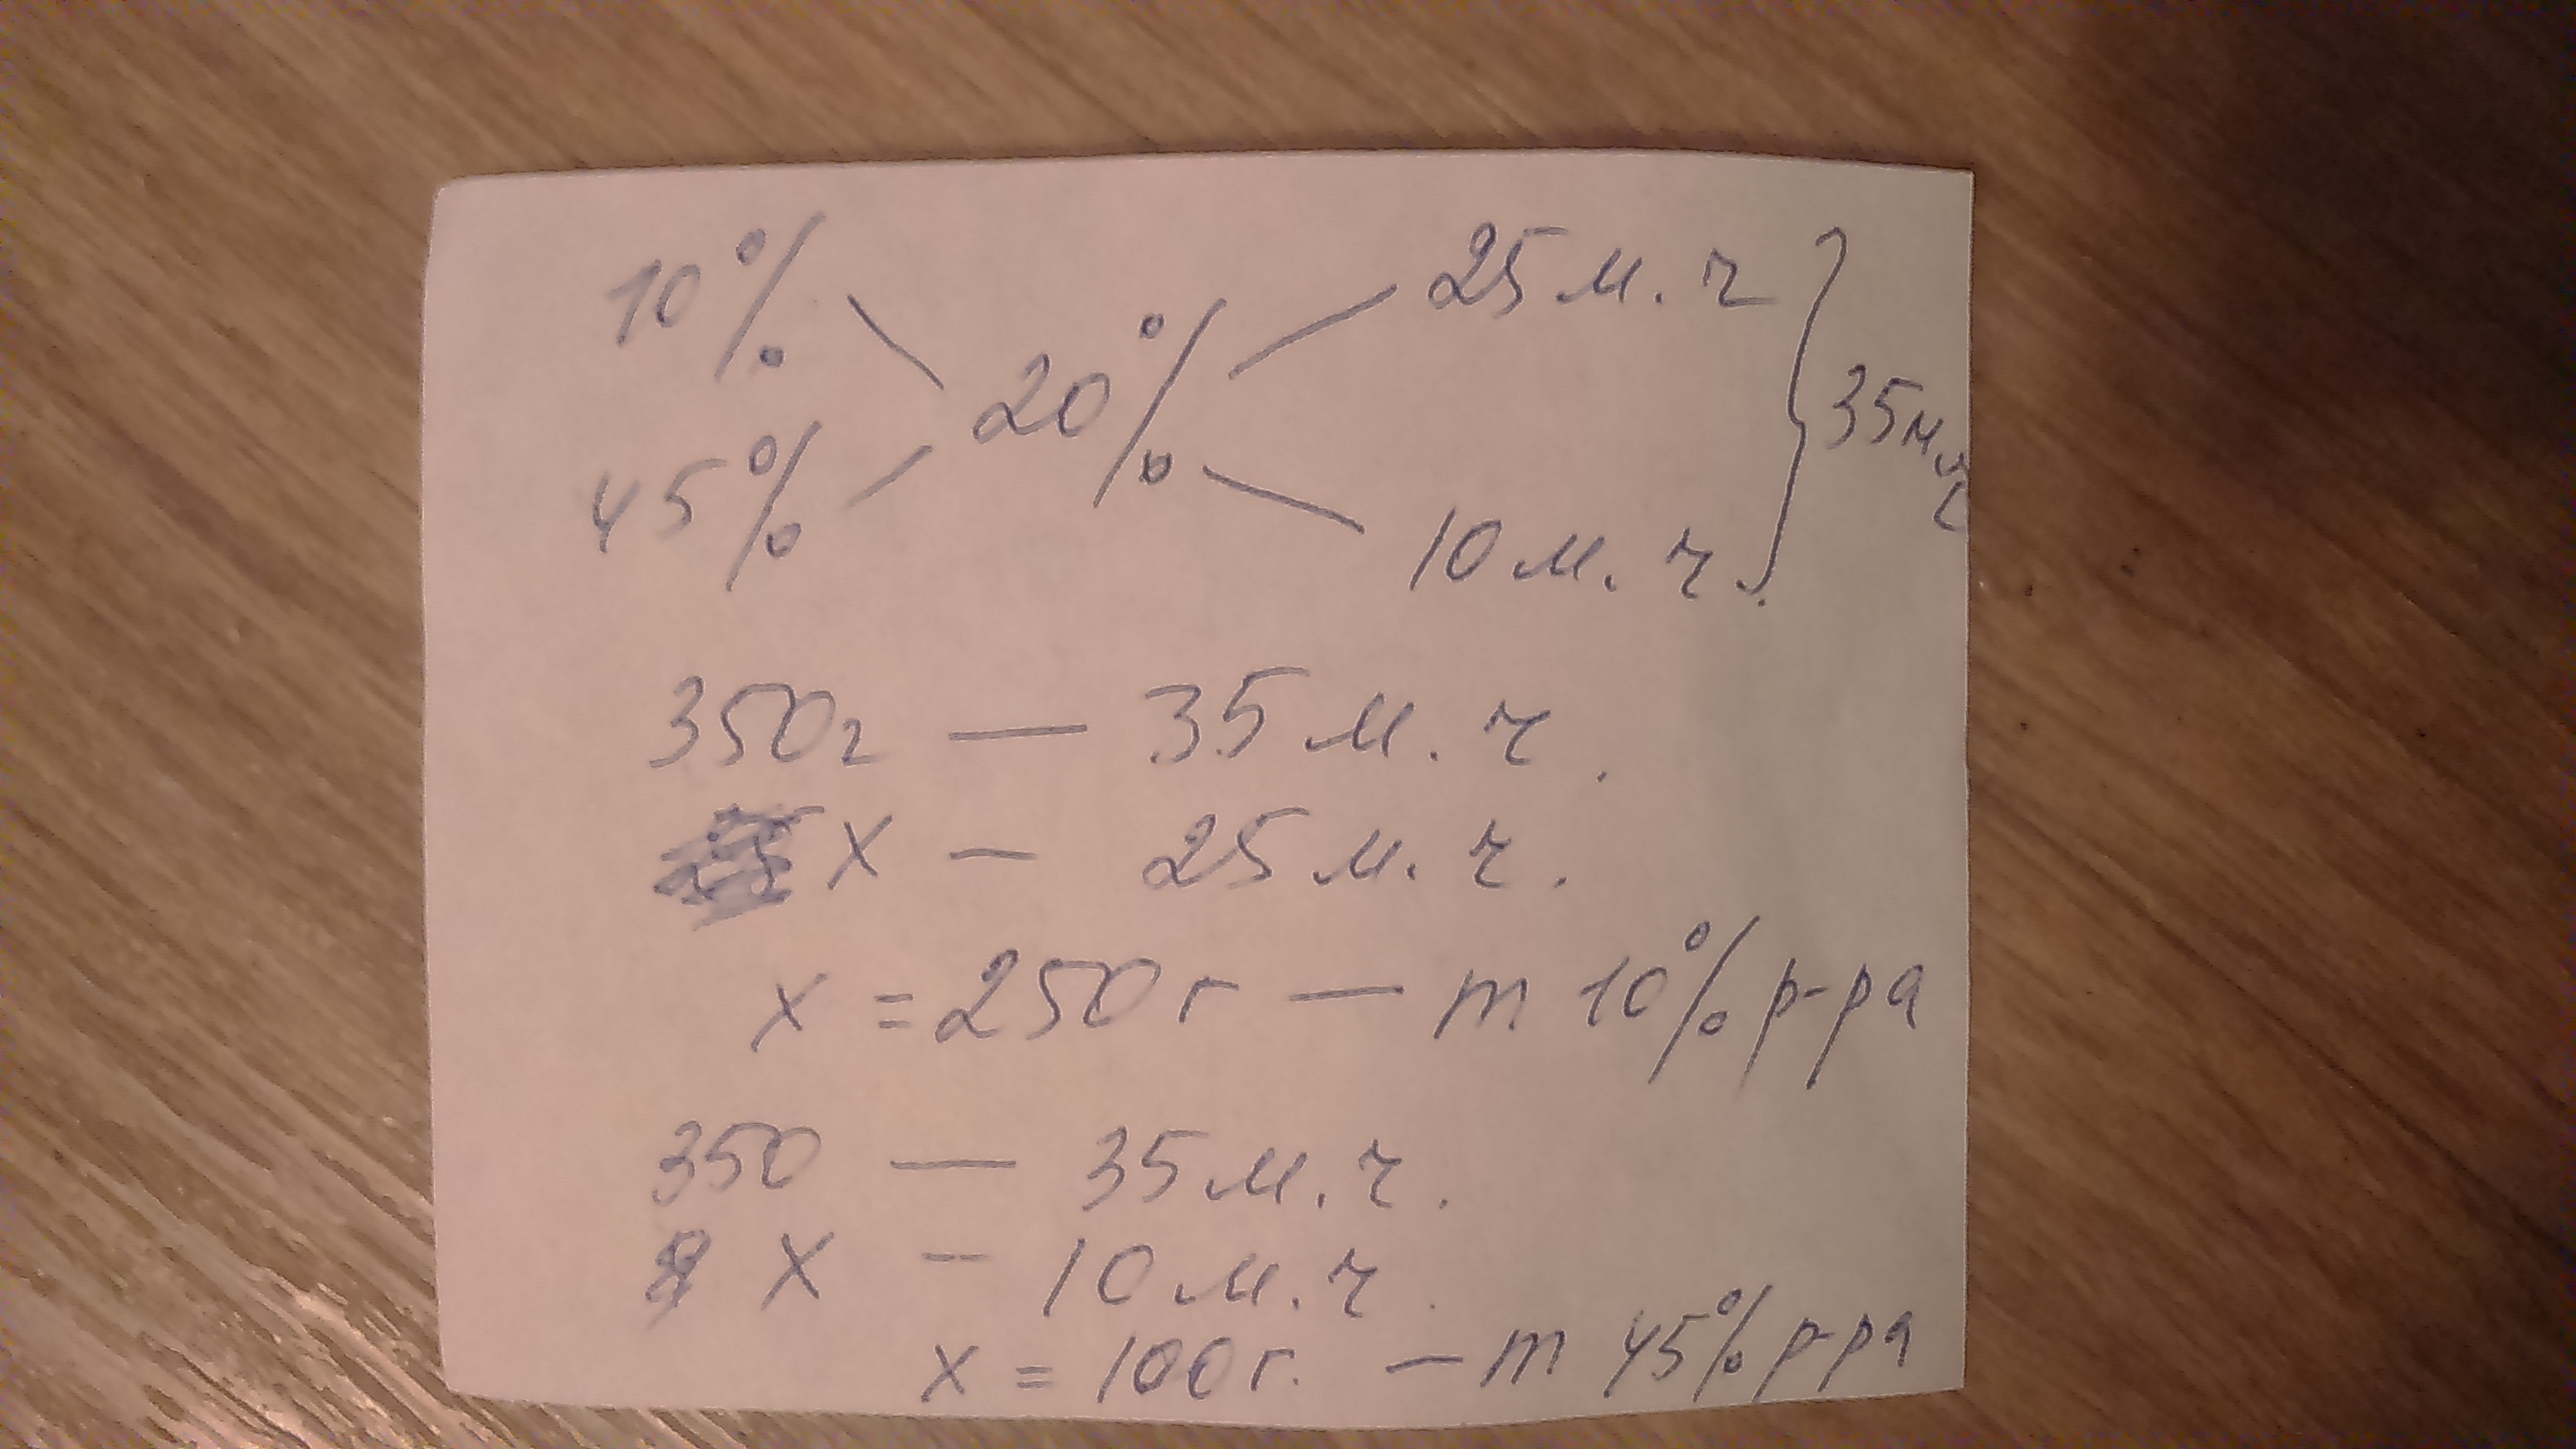 10% 25 м.ч
20% } 35 м.ч
45% 10 м.ч.
350г — 35 м.ч.
х — 25 м.ч.
х = 250 г — m 10% р-ра
350 — 35 м.ч.
х — 10 м.ч.
х = 100 г. — m 45% р-ра